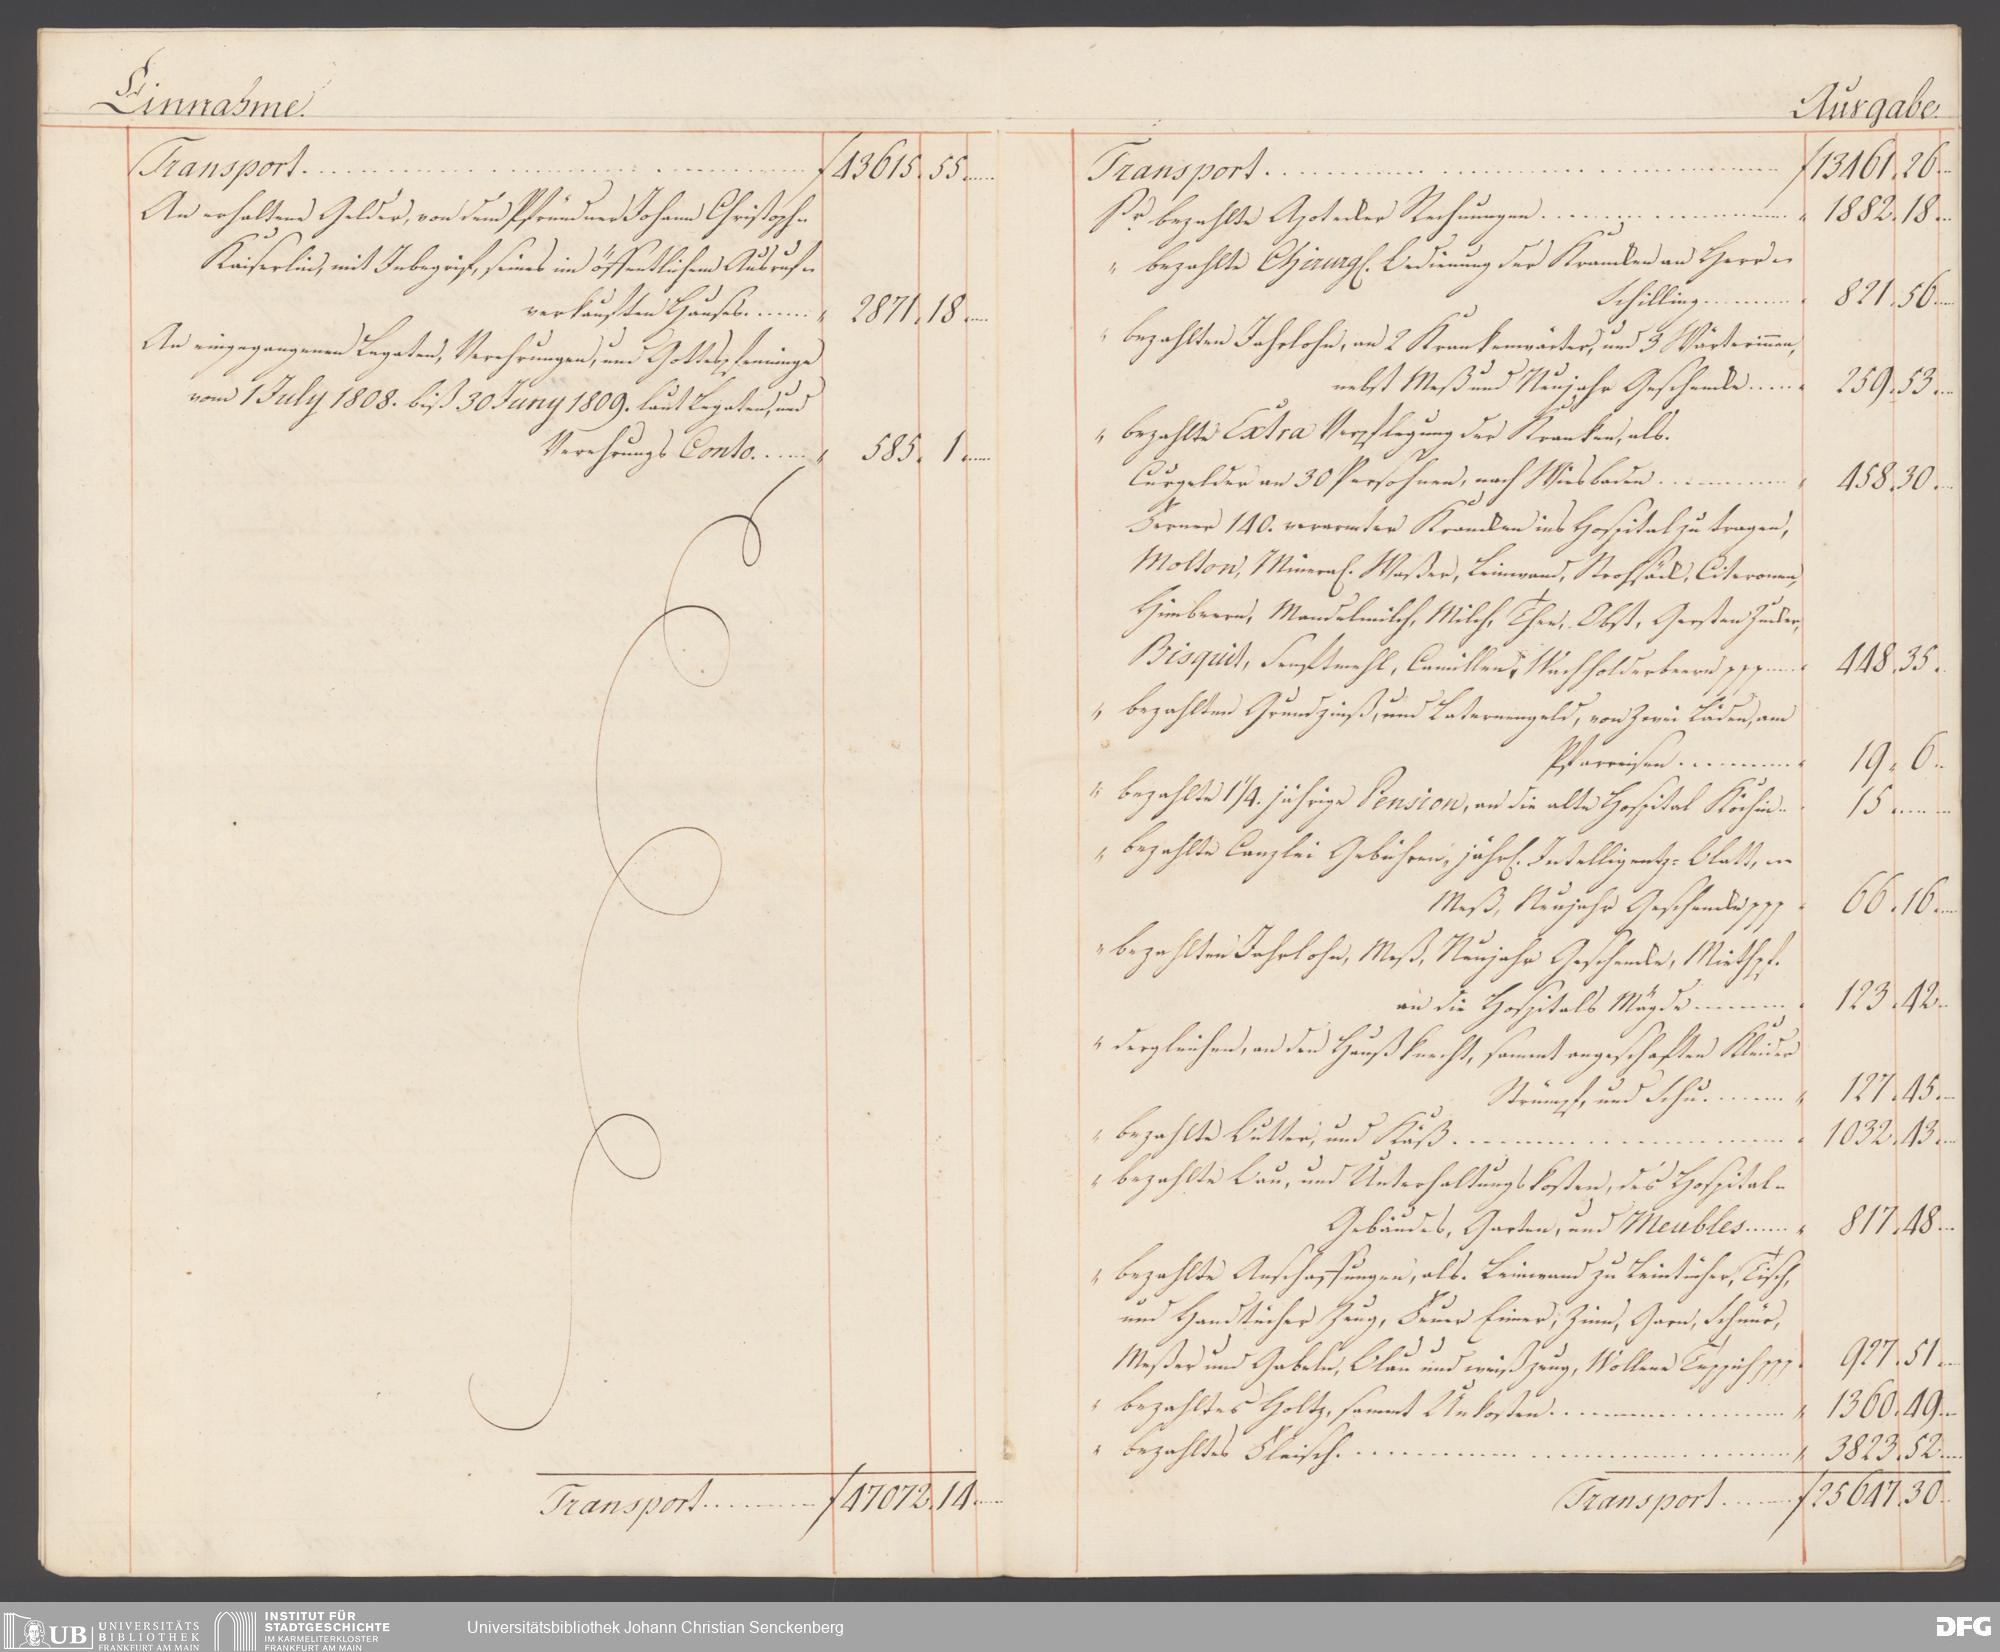 Einnahme.
Transport . . . . . f 43615. 55.
An erhaltene Gelder, von dem Pfründner Johann Christoph
Kaiserlin, mit Inbegriff, seines im öffentlichem Ausruf
verkauften Hauses. . . . „ 2871. 18.
An eingegangenen Legaten, Verehrungen, und Gottespfenninge
vom 1 July 1808. biß 30 Juny 1809. laut Legaten, und
Verehrungs Conto. . . . „ 585. 1.
Transport . . . . . f 47072. 14.
Ausgabe.
Transport . . . . . f 13461. 26.
Pr. bezahlte Apotecker Rechnungen . . . . „ 1882. 18.
„ bezahlte Chirurg. Bedienung der Krancken an Herr
Schilling . . . . „ 821. 56.
„ bezahlten Jahrlohn, an 2 Krankenwärter, und 3 Wärterinnen,
nebst Meß und Neujahr Geschencke . . . . „ 259. 53.
„ bezahlte Extra Verpflegung der Kranken, als.
Curgelder an 30 Persohnen, nach Wiesbaden . . . . „ 458. 30.
Ferner 140. verarmter Krancken ins Hospital zu tragen,
Molton, Mineral. Waßer, Leinwand, Strohsäck, Citeronen,
Himbeern, Mandelmilch, Milch, Thee, Obst, Gersten Zucker,
Bisquit, Senftmehl, Camillen, Wachholderbeern ppp . . . „ 448. 35.
„ bezahlten Grundzinß, und Laternengeld, von Zwei Läden, am
Pfarreisen . . . . „ 19. 6.
„ bezahlte 1 1/4. jährige Pension, an die alte Hospital Köchin . . „ 15
„ bezahlte Canzlei Gebühren, jährl. Intelligentz-Blatt,
Meß, Neujahr Geschencke ppp „ 66. 16.
„ bezahlten Jahrlohn, Meß, Neujahr Geschencke, Miethpf.
an die Hospitals Mägde . . . . „ 123. 42.
„ dergleichen, an den Haußknecht, sammt angeschaften Kleider
Strümpf, und Schu. . . . . „ 127. 45.
„ bezahlte Butter, und Käß . . . . „ 1032. 43.
„ bezahlte Bau, und Unterhaltungskosten, des Hospital-
Gebäudes, Garten, und Meubles . . . . „ 817. 48.
„ bezahlte Anschaffungen, als. Leinwand zu Leintücher, Tisch,
und Handtücher Zeug, Feuer Eimer, Zinn, Garn, Schnür,
Meßer und Gabeln, Blau und weiß zeug, Wollene Teppich ppp „ 927. 51.
„ bezahltes Holtz, sammt Unkosten . . . . „ 1360. 49.
„ bezahltes Fleisch. . . . . „ 3823. 52.
Transport . . . . . f 25647. 30.
UB UNIVERSITÄTS
BIBLIOTHEK
FRANKFURT AM MAIN
INSTITUT FÜR
STADTGESCHICHTE
IM KARMELITERKLOSTER
FRANKFURT AM MAIN
Universitätsbibliothek Johann Christian Senckenberg
DFG